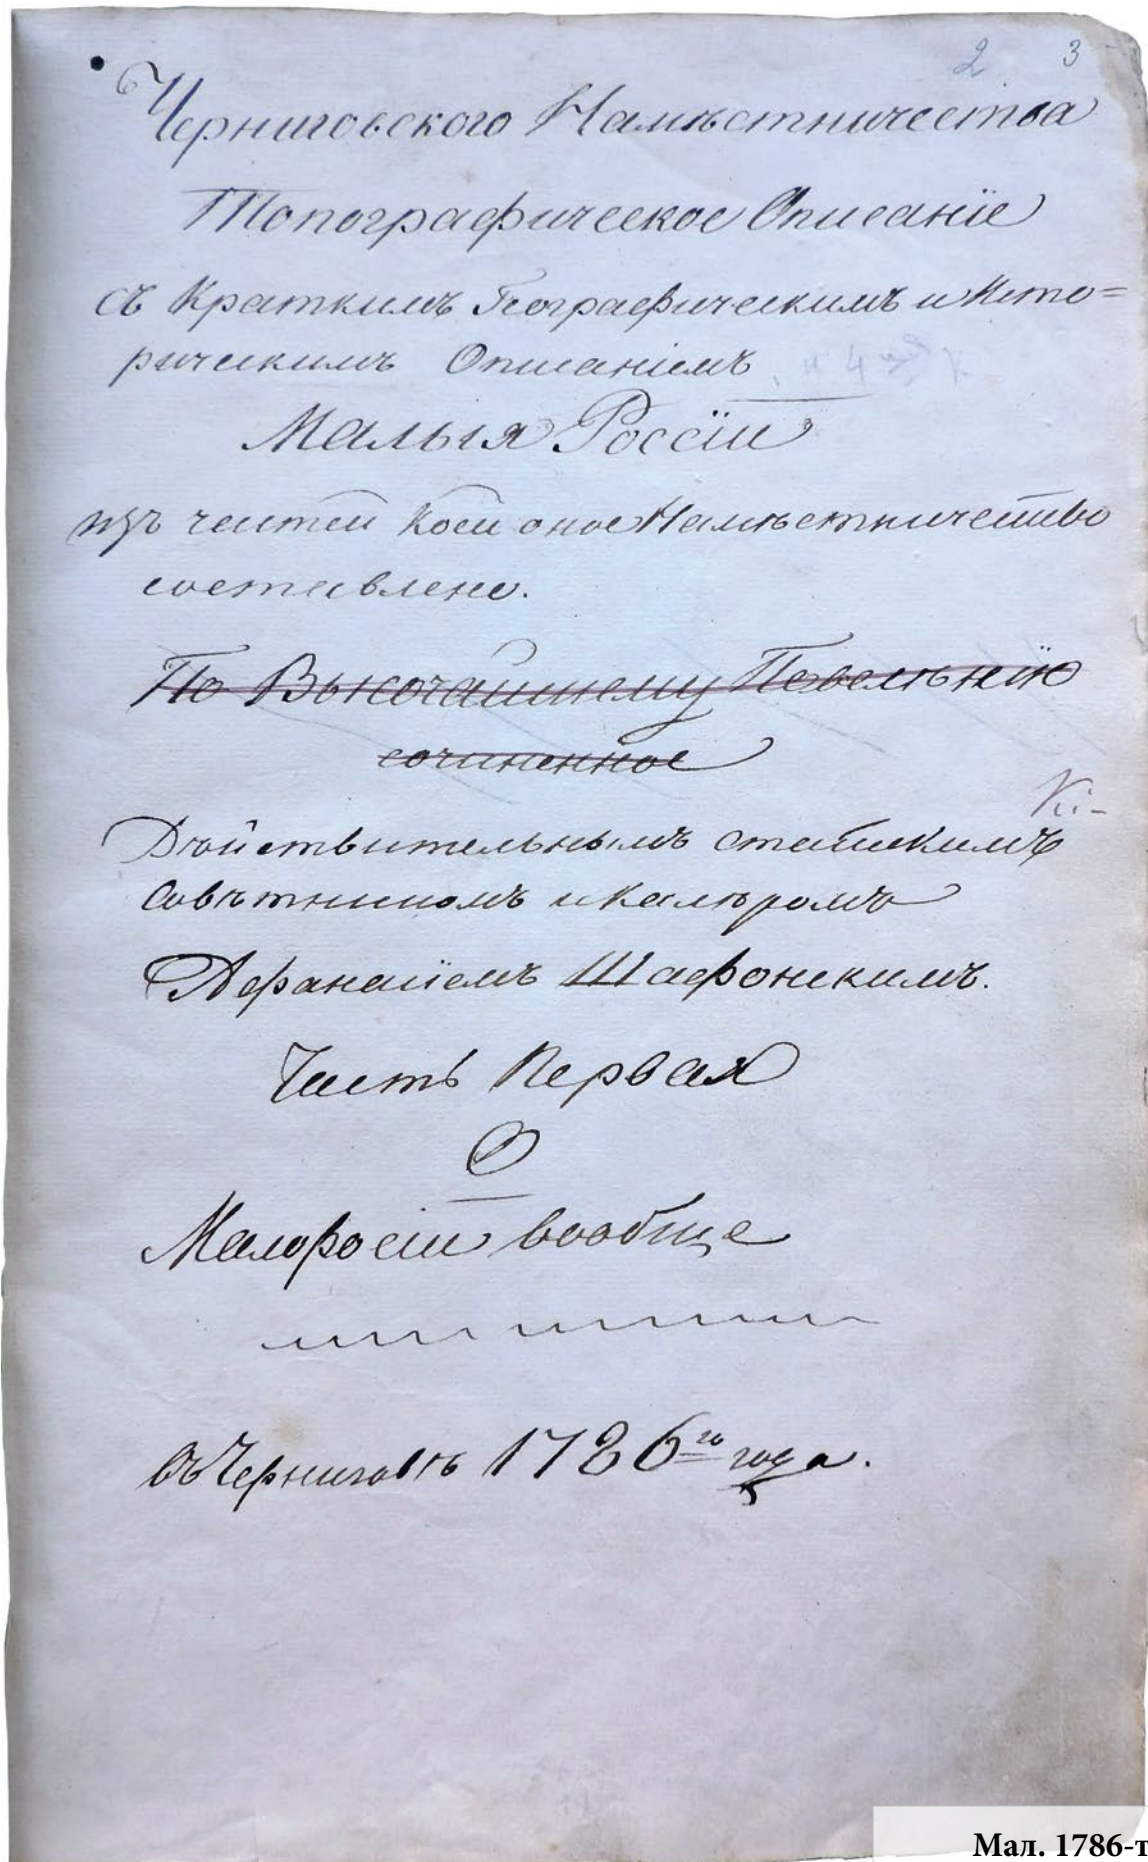 2 3
Черниговского Намѣстничества
Топографическое Описаніе
съ Краткимъ Географическимъ и Исто=
рическимъ Описаніемъ
Малыя Россіи
изъ частей коей оное Намѣстничество
составлено.
По Высочайшему Повелѣнію
сочиненное
Дѣйствительнымъ статскимъ
совѣтникомъ и кавалеромъ
Афанасіемъ Шафонскимъ.
Часть Первая
О
Малоросіи вообще
въ Черниговѣ 1786го года.
Мал. 1786-т